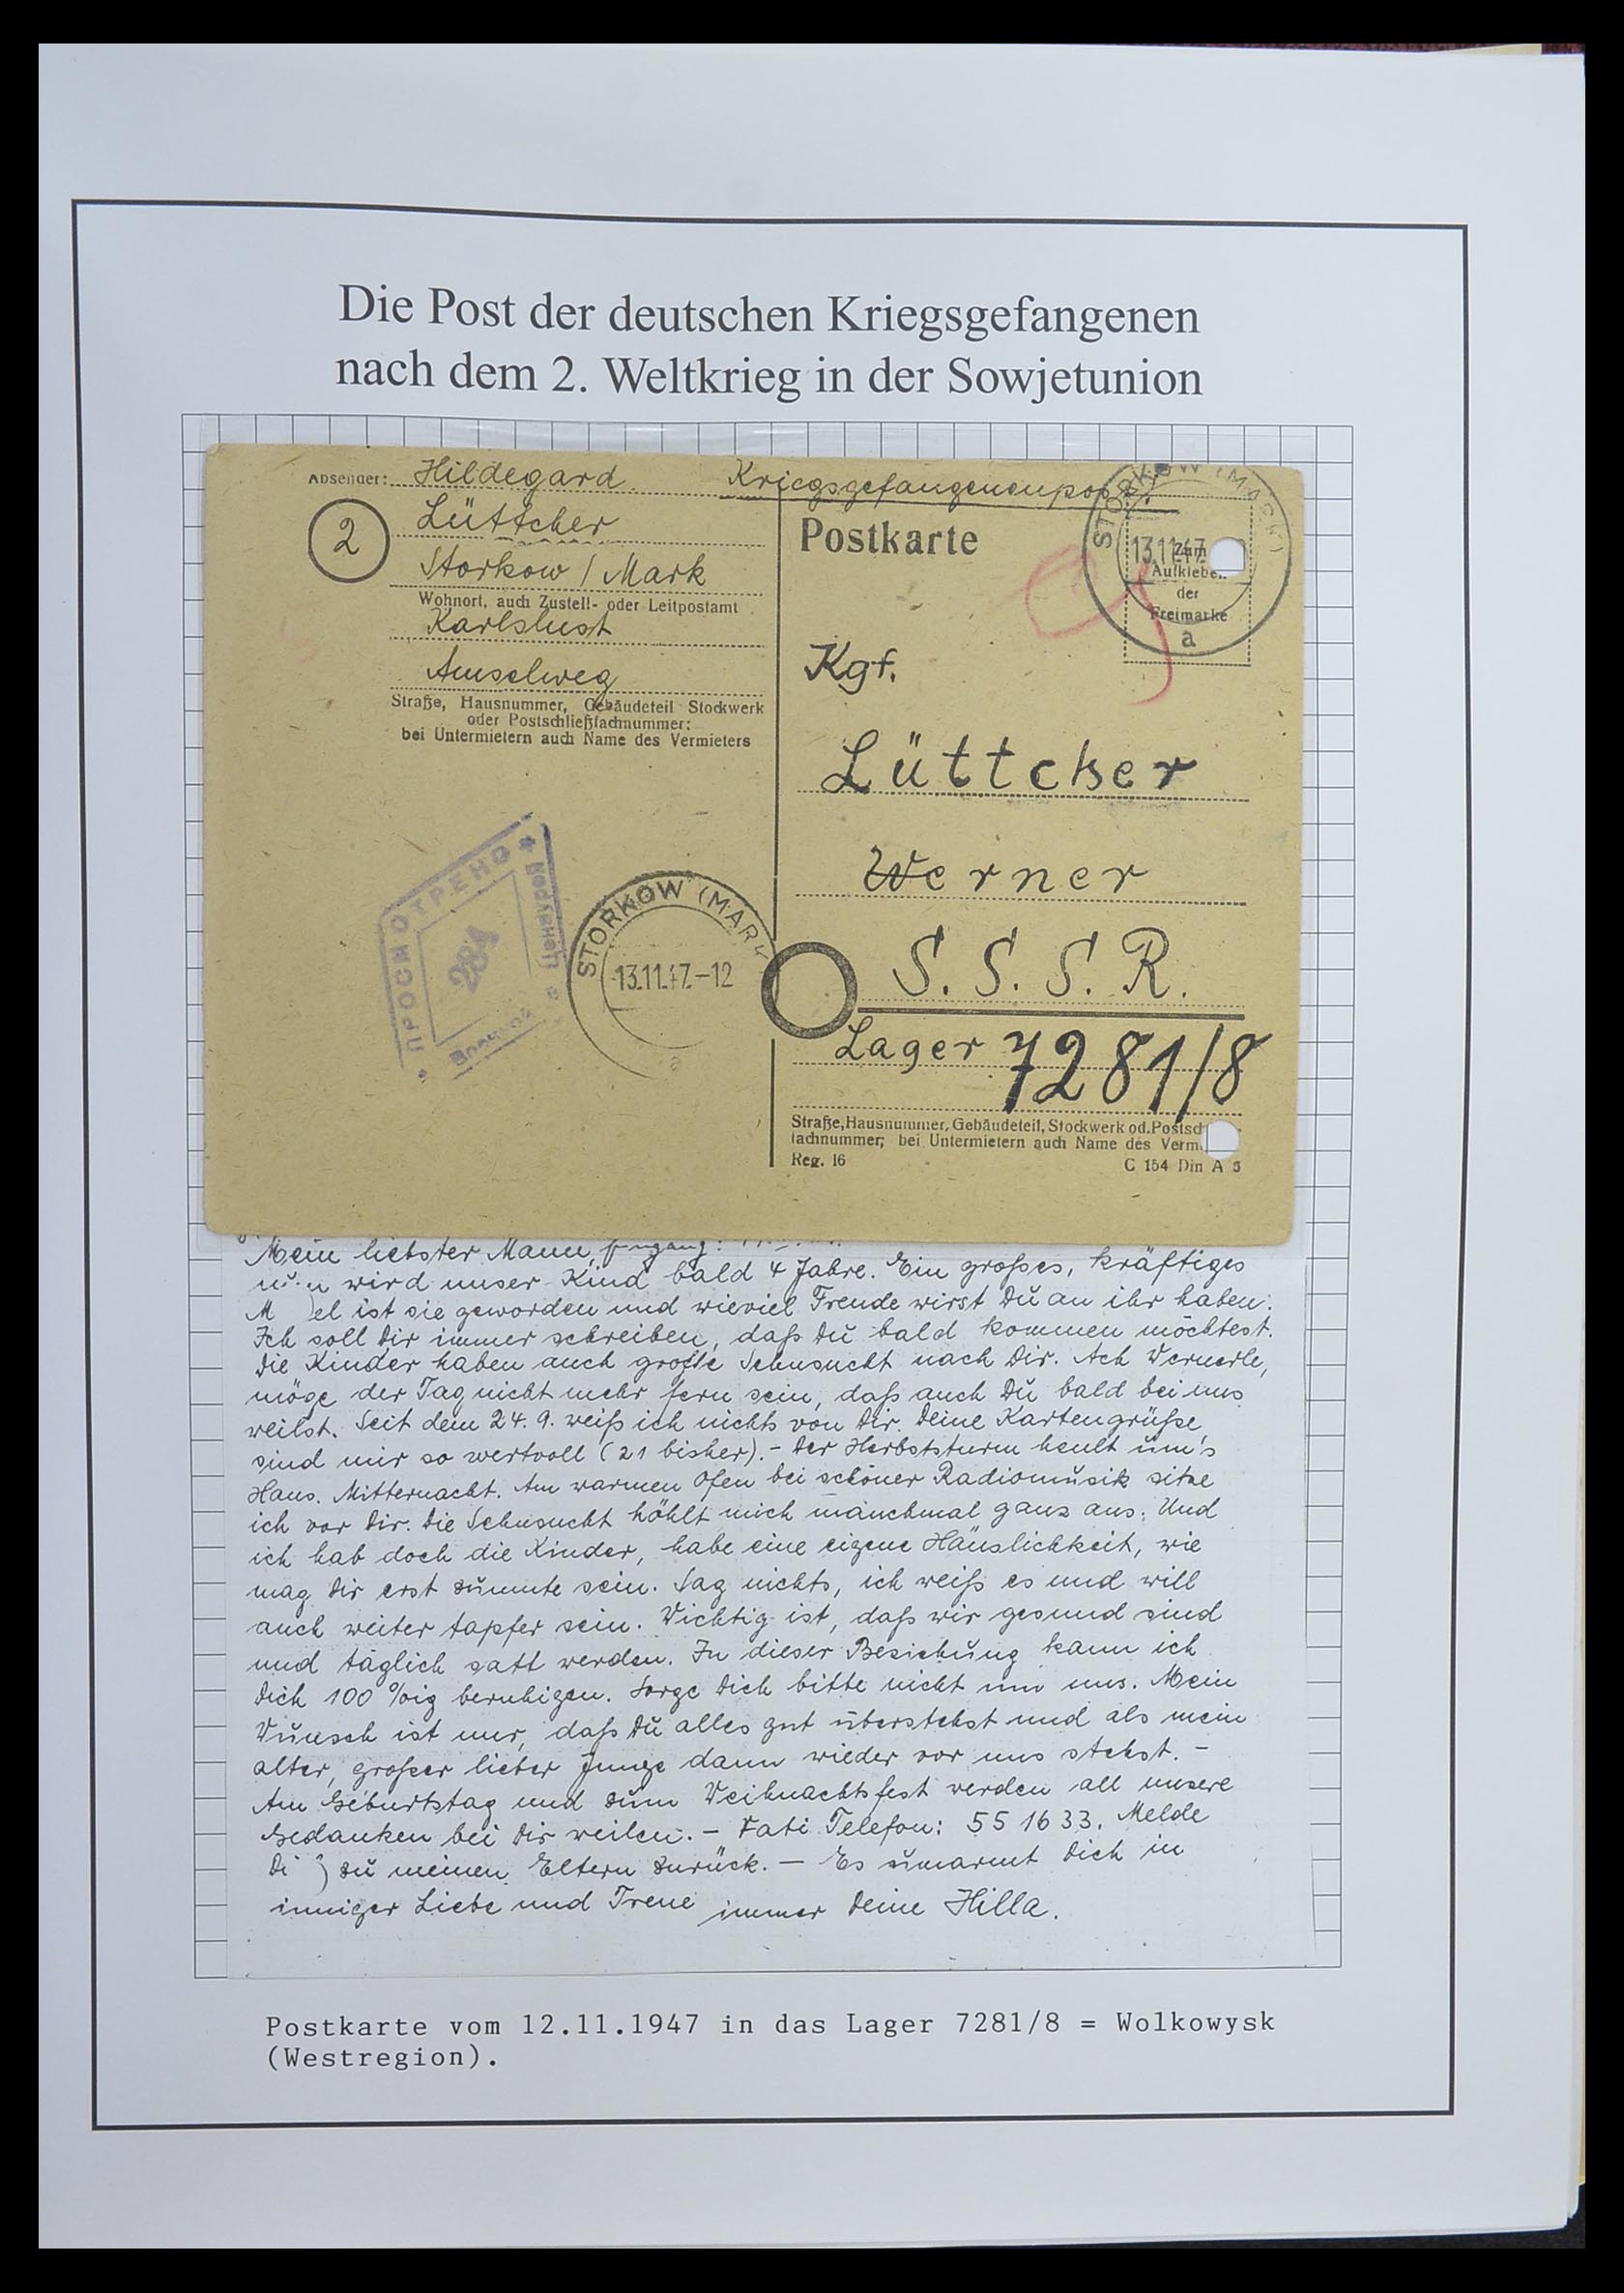 Die Post der deutschen Kriegsgefangenen
nach dem 2. Weltkrieg in der Sowjetunion
Absender: Hildegard
Lüttcher
Storkow / Mark
Wohnort, auch Zustell- oder Leitpostamt
Karlslust
Amselweg
Straße, Hausnummer, Gebäudeteil Stockwerk
oder Postschließfachnummer;
bei Untermietern auch Name des Vermieters
2
Kriegsgefangenenpost.
Postkarte
STORKOW (MARK)
13.11.47
a
Zum
Aufkleben
der
Freimarke
Kgf.
Lüttcher
Werner
S. S. S. R.
Lager 7281/8
Straße, Hausnummer, Gebäudeteil, Stockwerk od. Postsch
fachnummer; bei Untermietern auch Name des Verm
Reg. 16
C 154 Din A 6
ПРОСМОТРЕНО
Военной
Цензурой
284
STORKOW (MARK
13.11.47.-12
a
Mein liebster Mann,
nun wird unser Kind bald 4 Jahre. Ein großes, kräftiges
M el ist sie geworden und wieviel Freude wirst Du an ihr haben.
Ich soll Dir immer schreiben, daß Du bald kommen möchtest.
Die Kinder haben auch große Sehnsucht nach Dir. Ach Wernerle,
möge der Tag nicht mehr fern sein, daß auch Du bald bei uns
weilst. Seit dem 24. 9. weiß ich nichts von Dir. Deine Kartengrüße
sind mir so wertvoll (21 bisher). - Der Herbststurm heult um's
Haus. Mitternacht. Am warmen Ofen bei schöner Radiomusik sitze
ich vor Dir. Die Sehnsucht höhlt mich manchmal ganz aus. Und
ich hab doch die Kinder, habe eine eigene Häuslichkeit, wie
mag Dir erst zumute sein. Sag nichts, ich weiß es und will
auch weiter tapfer sein. Wichtig ist, daß wir gesund sind
und täglich satt werden. In dieser Beziehung kann ich
Dich 100 %ig beruhigen. Sorge Dich bitte nicht um uns. Mein
Wunsch ist nur, daß Du alles gut überstehst und als mein
alter, großer lieber Junge dann wieder vor uns stehst. -
Am Geburtstag und zum Weihnachtsfest werden all unsere
Gedanken bei Dir weilen. - Vati Telefon: 55 16 33. Melde
Di zu meinen Eltern zurück. — Es umarmt Dich in
inniger Liebe und Treue immer Deine Hilla.
Postkarte vom 12.11.1947 in das Lager 7281/8 = Wolkowysk
(Westregion).